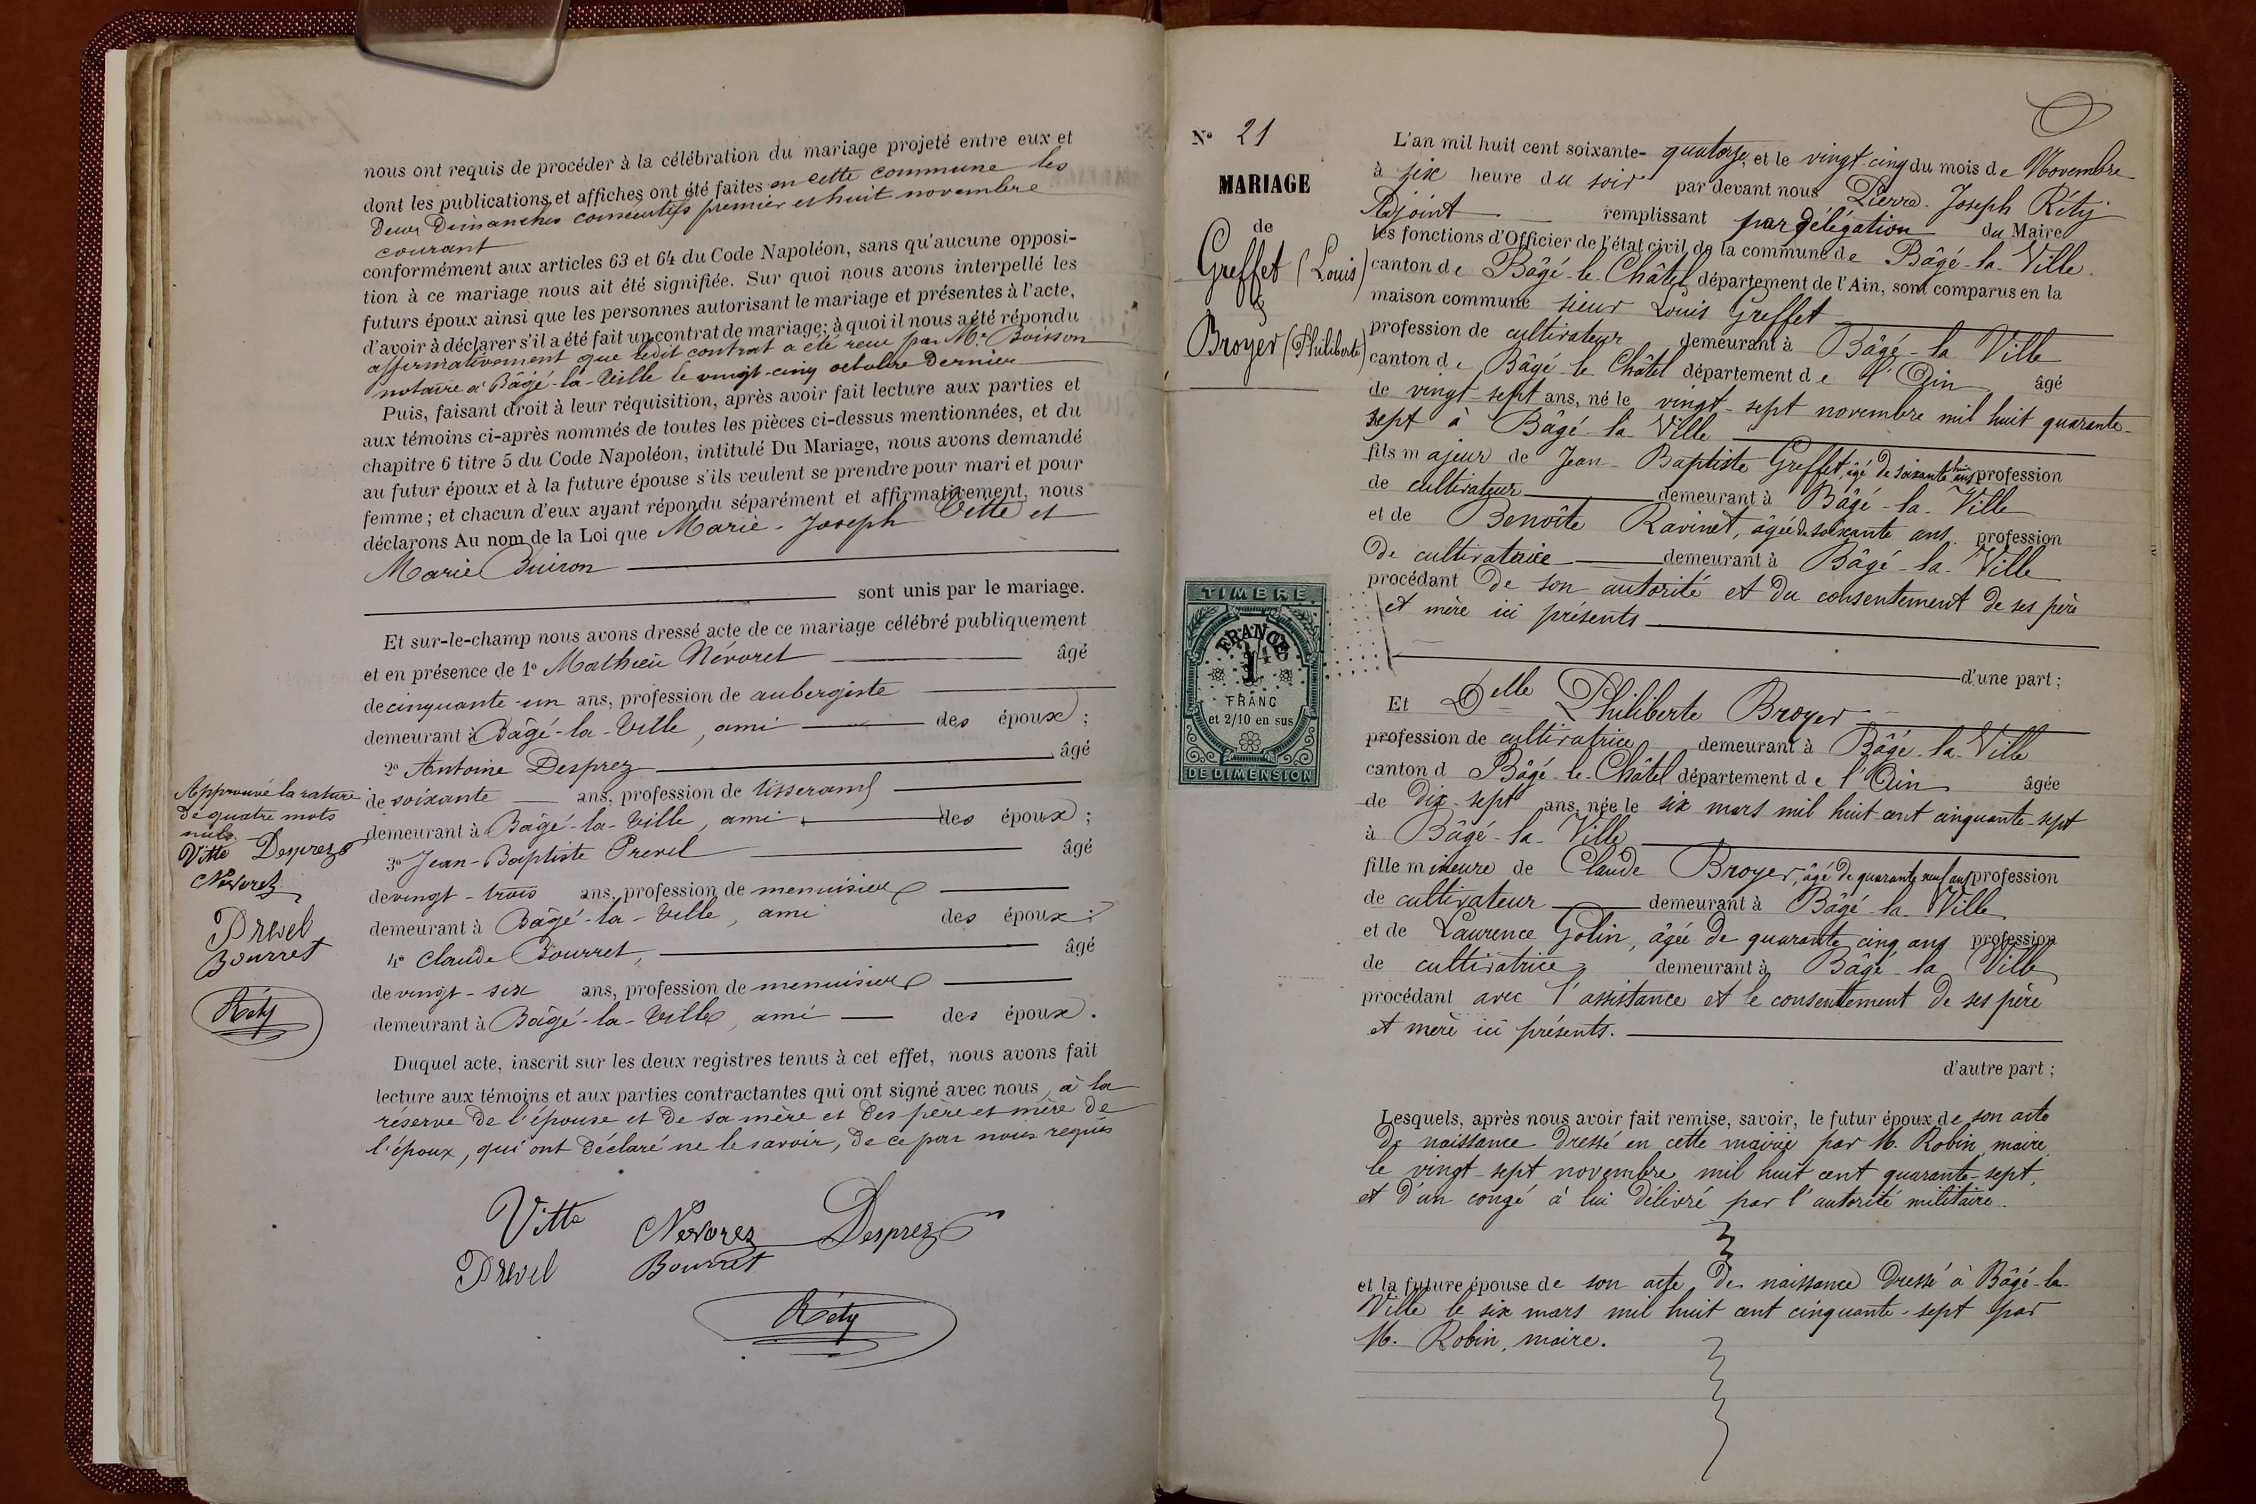 nous ont requis de procéder à la célébration du mariage projeté entre eux et
dont les publications et affiches ont été faites en cette commune les
deux Dimanches consécutifs premier et huit novembre
courant
conformément aux articles 63 et 64 du Code Napoléon, sans qu'aucune opposi-
tion à ce mariage nous ait été signifiée. Sur quoi nous avons interpellé les
futurs époux ainsi que les personnes autorisant le mariage et présentes à l'acte,
d'avoir à déclarer s'il a été fait un contrat de mariage; à quoi il nous a été répondu
affirmativement que ledit contrat a été reçu par Me Boisson
notaire à Bâgé-la-Ville le vingt-cinq octobre Dernier
Puis, faisant droit à leur réquisition, après avoir fait lecture aux parties et
aux témoins ci-après nommés de toutes les pièces ci-dessus mentionnées, et du
chapitre 6 titre 5 du Code Napoléon, intitulé Du Mariage, nous avons demandé
au futur époux et à la future épouse s'ils veulent se prendre pour mari et pour
femme; et chacun d'eux ayant répondu séparément et affirmativement, nous
déclarons Au nom de la Loi que Marie-Joseph Vitte et
Marie Buiron
sont unis par le mariage.
Et sur-le-champ nous avons dressé acte de ce mariage célébré publiquement
et en présence de 1o Mathieu Névoret âgé
de cinquante-un ans, profession de aubergiste
demeurant à Bâgé-la-Ville, ami des époux;
2o Antoine Desprez âgé
de soixante ans, profession de tisserand
demeurant à Bâgé-la-Ville, ami des époux;
3o Jean-Baptiste Prevel âgé
de vingt-trois ans, profession de menuisier
demeurant à Bâgé-la-Ville, ami des époux;
4o Claude Bourret, âgé
de vingt-six ans, profession de menuisier
demeurant à Bâgé-la-Ville, ami des époux.
Duquel acte, inscrit sur les deux registres tenus à cet effet, nous avons fait
lecture aux témoins et aux parties contractantes qui ont signé avec nous, à la
réserve de l'épouse et de sa mère et des père et mère de
l'époux, qui ont déclaré ne le savoir, de ce par nous requis
Vitte Nevorez Desprez
Prevel Bourret
Réty
Approuvé la rature
de quatre mots
nuls.
Vitte Desprez
Nevorez
Prevel
Bourret
Réty
No 21
MARIAGE
de
Greffet (Louis)
&
Broyer (Philiberte)
TIMBRE
FRANCE
1
FRANC
et 2/10 en sus
DE DIMENSION
L'an mil huit cent soixante-quatorze, et le vingt-cinq du mois de Novembre
à six heure du soir par devant nous Pierre-Joseph Réty
Adjoint remplissant par délégation du Maire
les fonctions d'Officier de l'état civil de la commune de Bâgé-la-Ville.
canton de Bâgé-le-Châtel département de l'Ain, sont comparus en la
maison commune sieur Louis Greffet
profession de cultivateur demeurant à Bâgé-la Ville
canton de Bâgé-le Châtel département de l'Ain âgé
de vingt-sept ans, né le vingt-sept novembre mil huit quarante-
sept à Bâgé-la-Ville
fils majeur de Jean-Baptiste Greffet, âgé de soixante huit ans profession
de cultivateur demeurant à Bâgé-la-Ville
et de Benoîte Ravinet, âgée de soixante ans. profession
De cultivatrice demeurant à Bâgé-la-Ville
procédant De son autorité et du consentement de ses père
et mère ici présents
d'une part;
Et Delle Philiberte Broyer
profession de cultivatrice demeurant à Bâgé-la-Ville
canton d Bâgé-le-Châtel département de l'Ain âgée
de Dix-sept ans, née le six mars mil huit-cent cinquante-sept
à Bâgé-la-Ville
fille mineure de Claude Broyer, âgé de quarante neuf ans profession
de cultivateur demeurant à Bâgé-la-Ville
et de Laurence Golin, âgée de quarante cinq ans profession
de cultivatrice demeurant à Bâgé-la Ville
procédant avec l'assistance et le consentement de ses père
et mère ici présents.
d'autre part;
Lesquels, après nous avoir fait remise, savoir, le futur époux de son acte
De naissance dressé en cette mairie par M. Robin, maire,
le vingt-sept novembre mil huit cent quarante-sept,
et d'un congé à lui délivré par l'autorité militaire.
et la future épouse de son acte de naissance dressé à Bâgé-la-
Ville le six mars mil huit cent cinquante-sept par
M. Robin, maire.